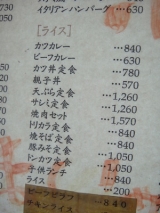 イタリアンハンバーグ …
[ライス]
カツカレー …840
ビーフカレー …630
カツ丼定食 …1,050
親子丼 …570
天ぷら定食 …1,260
サシミ定食 …1,260
焼肉セット …1,570
トリカラ定食 …840
焼そば定食 …840
豚みそ定食
トンカツ定食
子供ランチ
ライス
チキンライス 840